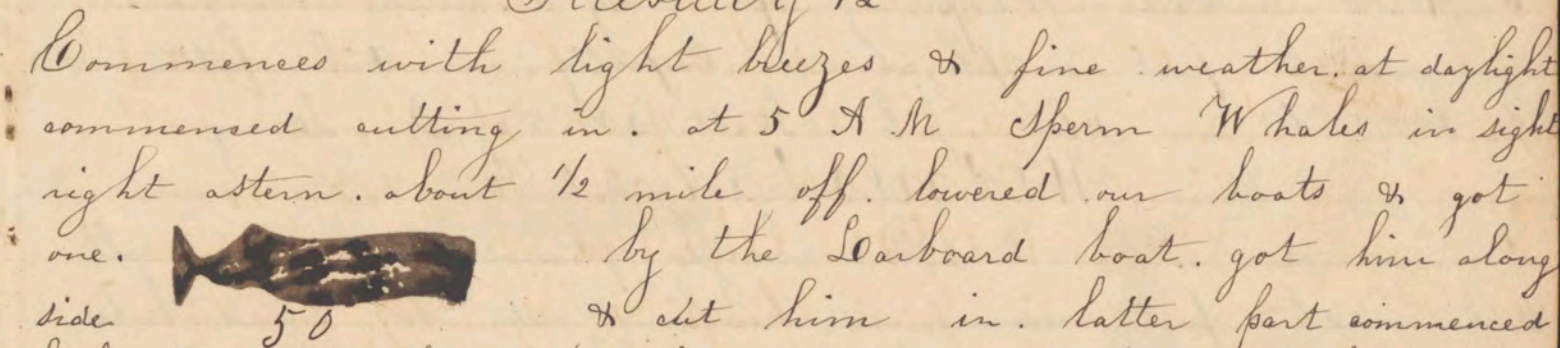 Commences with light breezes & fine weather. at daylight
commensed cutting in. at 5 A M Sperm Whales in sight
right astern. about 1/2 mile off. lowered our boats & got
one. by the Larboard boat. got him along
side 50 & cut him in. latter part commenced